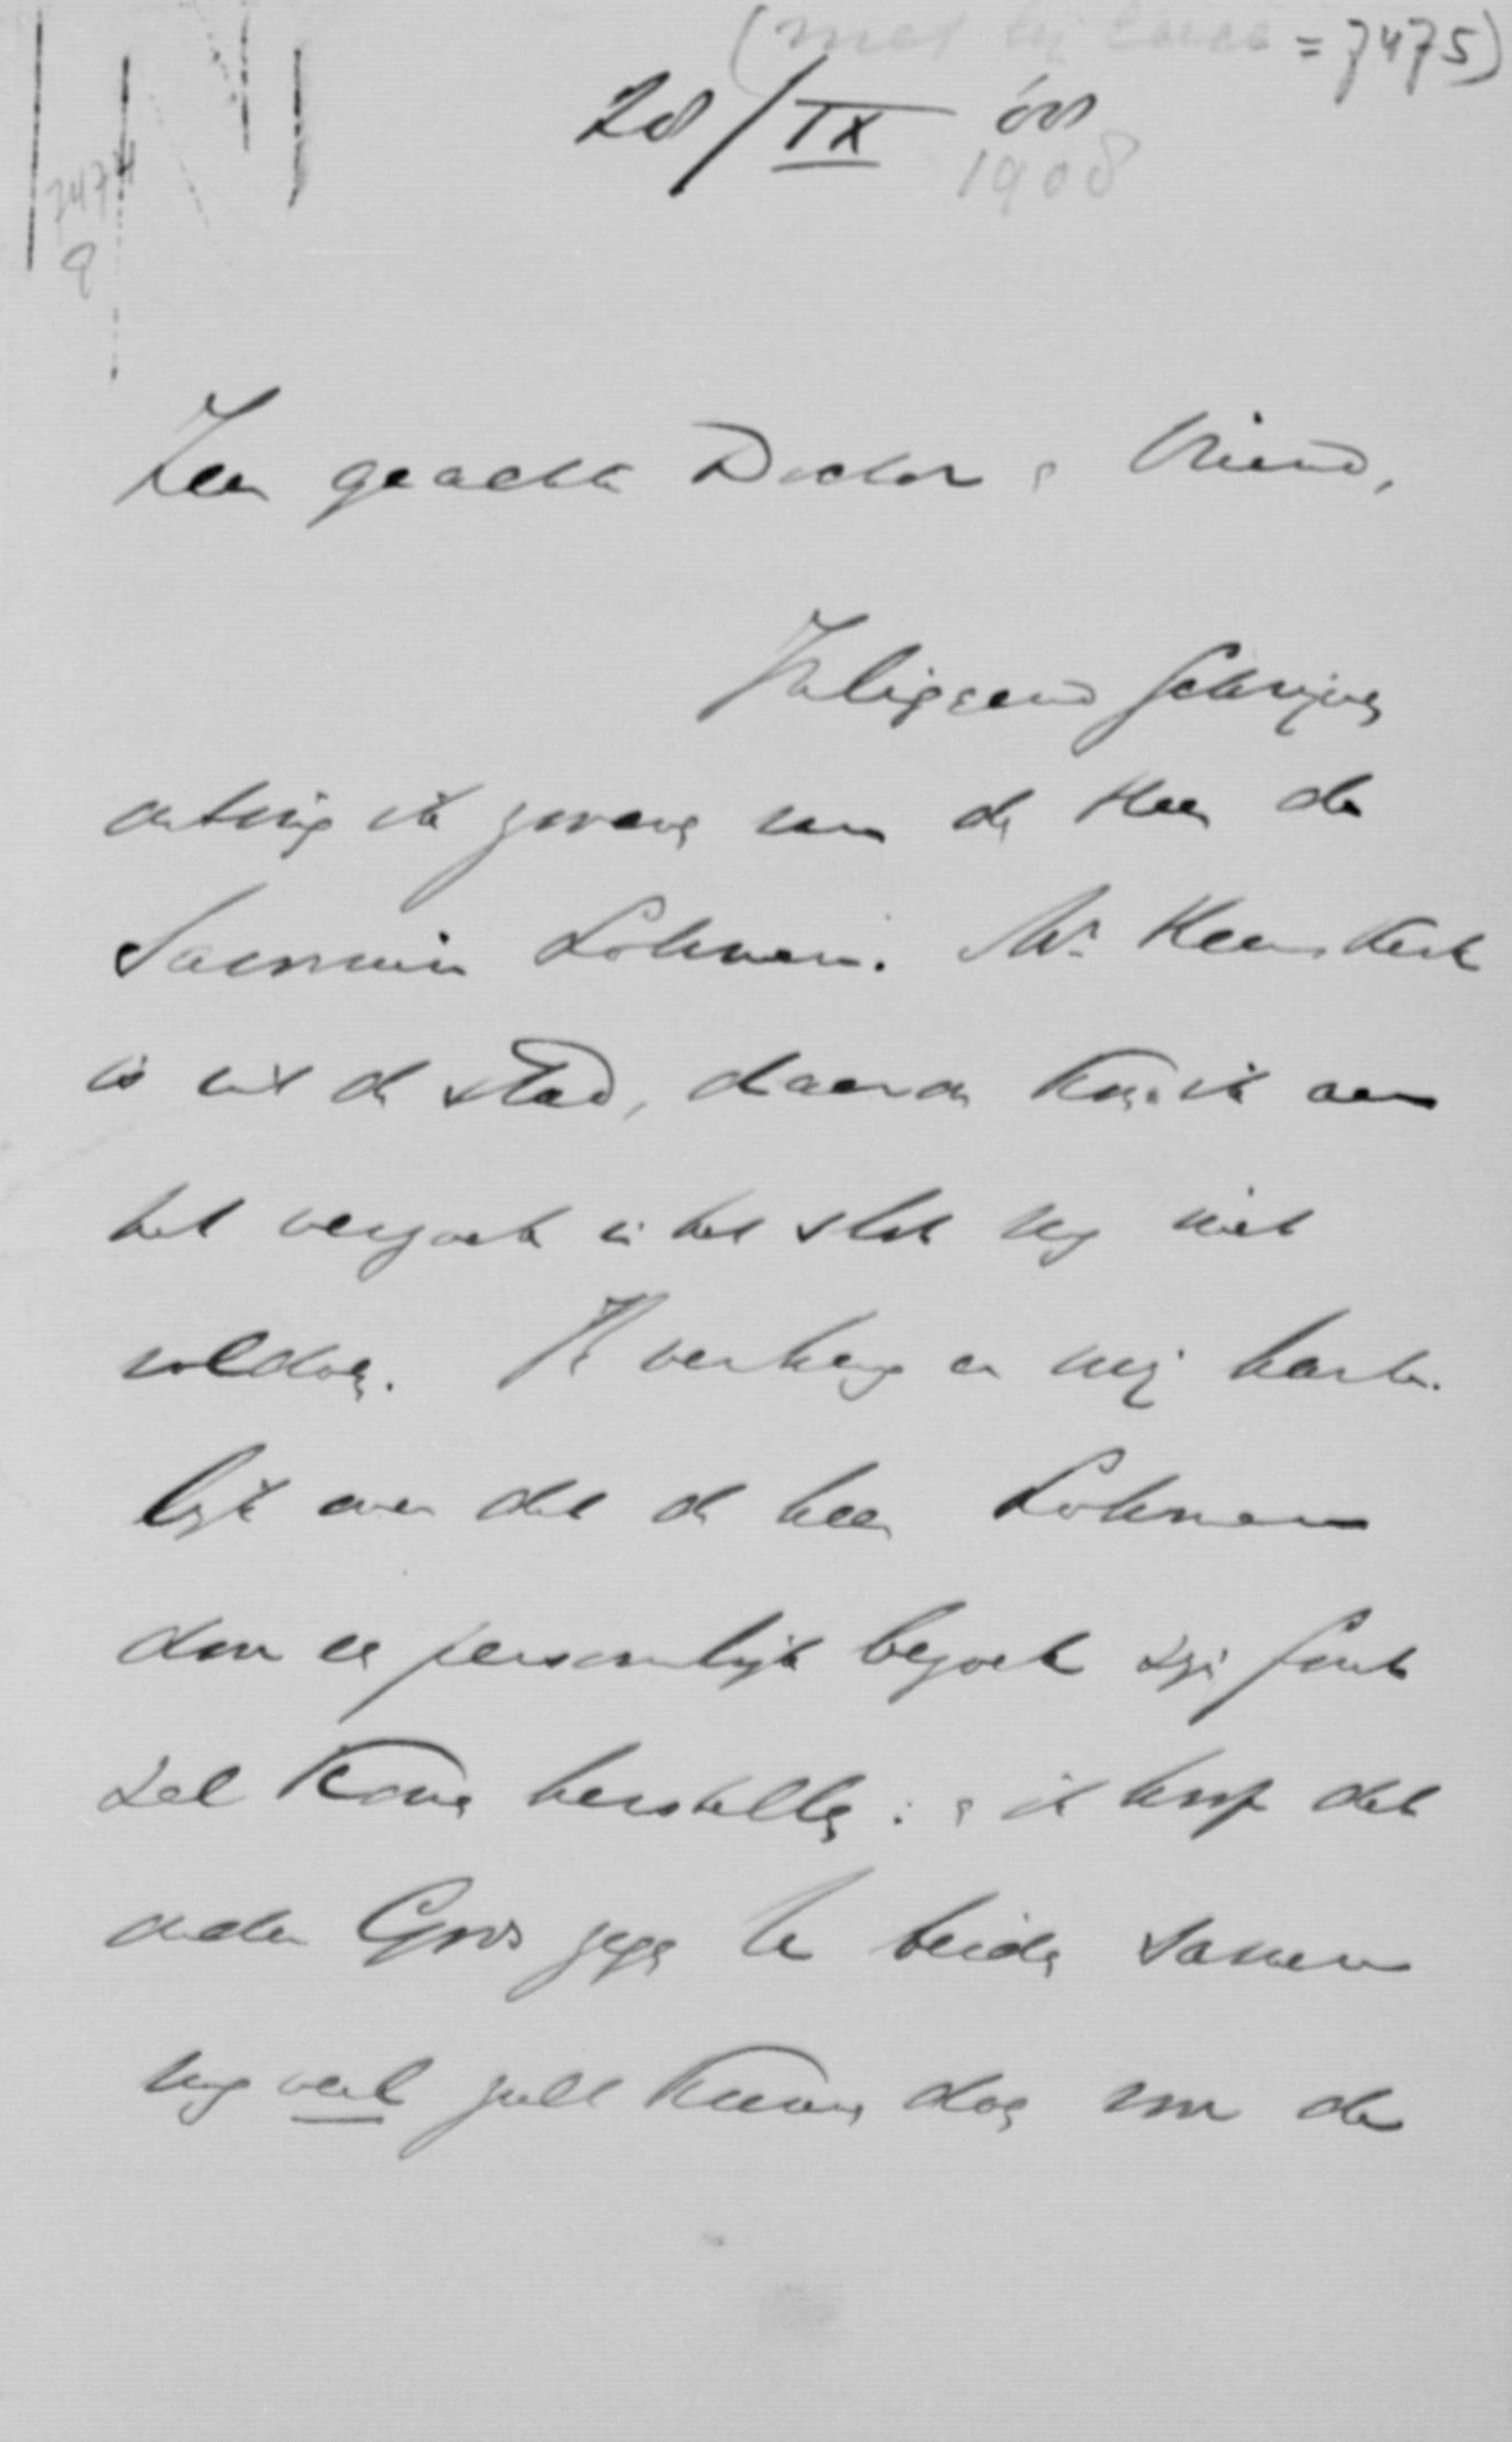 = 7475)
28/IX 08
1908
7474
Zeer geachte Doctor & Vriend,
Inliggend schrijven
ontving ik zoveen van de Heer de
Savornin Lohman. Mr. Heemskerk
is uit de stad, daarom kon ik aan
het verzoek in het slot nog niet
voldoen. Ik verheug er mij harte-
lijk over dat de heer Lohman
door een persoonlijk bezoek zijn fout
zal kunnen herstellen: & ik hoop dat
onder Gods zegen U beiden samen
nog veel zult kunnen doen voor de